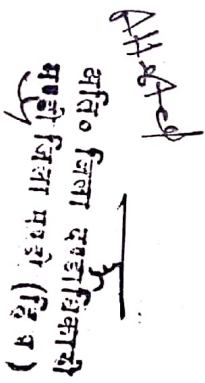 अति० जिला दण्डाधिकारी
मण्डी जिला मण्डी (हि प्र)